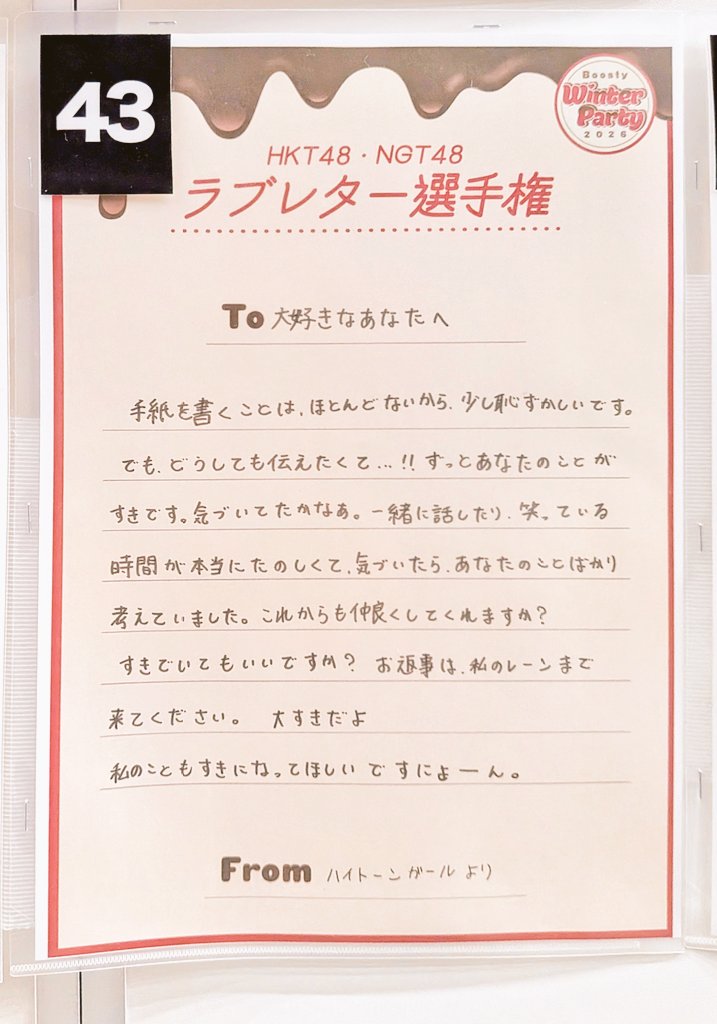 43
Boosty
Winter
Party
2026
HKT48・NGT48
ラブレター選手権
To 大好きなあなたへ
手紙を書くことは、ほとんどないから、少し恥ずかしいです。
でも、どうしても伝えたくて...!! ずっとあなたのことが
すきです。気づいてたかなあ。一緒に話したり、笑っている
時間が本当にたのしくて、気づいたら、あなたのことばかり
考えていました。これからも仲良くしてくれますか?
すきでいてもいいですか? お返事は、私のレーンまで
来てください。 大すきだよ
私のこともすきになってほしいですにょーん。
From ハイトーンガールより